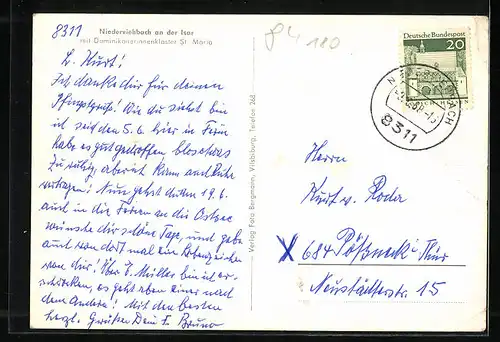 8311
Niederviehbach an der Isar
mit Dominikanerinnenkloster St. Maria
L. Kurt!
Ich danke dir für deinen
Pfingstgruß! Wie du siehst bin
ich seid den 5.6. hier in Ferien
habe es gut getroffen bloss etwas
zu ruhig, aber ich kann mal Ruhe
vertragen! Nun gehst du den 19.6.
auch in die Ferien an die Ostsee
wünsche dir schöne Tage, und gebe
auch von dort mal ein Lebenszeichen
von dir! Über F. Müller bin ich er-
schrocken, es geht eben einer nach
dem anderen! Mit den besten
herzl. Grüßen Dein F. Bruno
Verlag Foto Bergmann, Vilsbiburg, Telefon 268
94 180
Deutsche Bundespost
20
8311
Herrn
Kurt v. Roda
X 684 Pößneck / Thür
Neustädterstr. 15